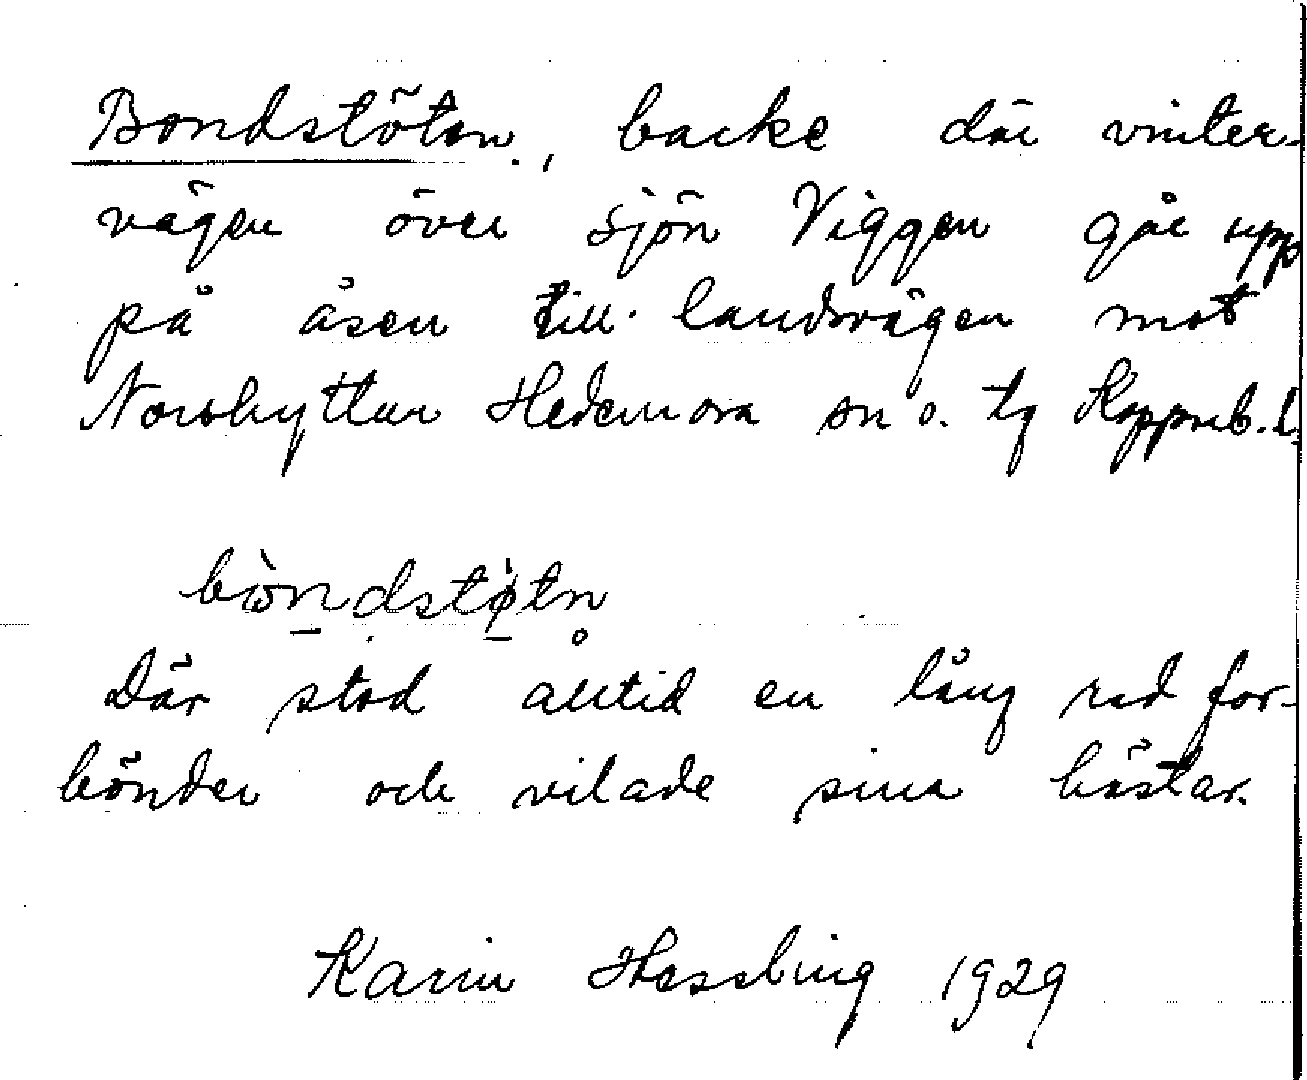 Bondstöten, backe där vinter-
vägen över sjön Viggen går upp
på åsen till landsvägen mot
Norshyttan Hedemora sn o. tg Kopparb. l.
Där stod alltid en lång rad for-
bönder och vilade sina hästar.
Karin Hessling 1929